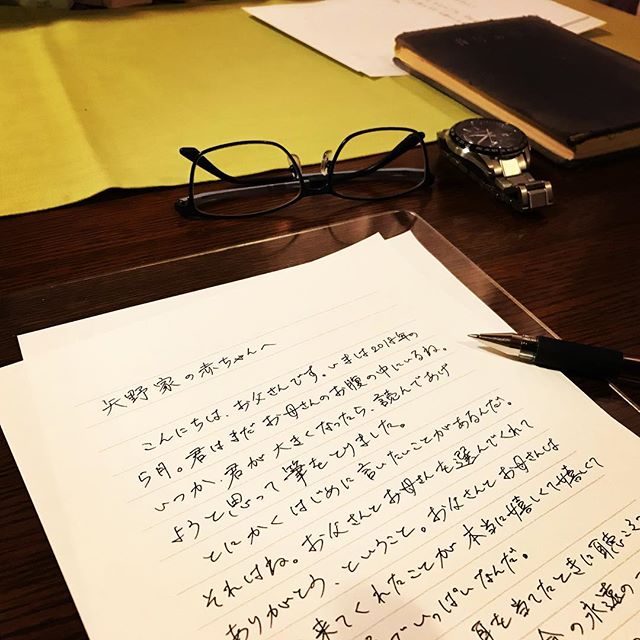 矢野家の赤ちゃんへ
こんにちは、お父さんです。いまは2018年の
5月。君はまだお母さんのお腹の中にいるね。
いつか、君が大きくなったら、読んであげ
ようと思って筆をとりました。
とにかくはじめに言いたいことがあるんだ。
それはね。お父さんとお母さんを選んでくれて
ありがとう、ということ。お父さんとお母さんは
来てくれたことが本当に嬉しくて嬉しくて
でいっぱいなんだ。
耳を当てたときに聴こえ
の永遠の